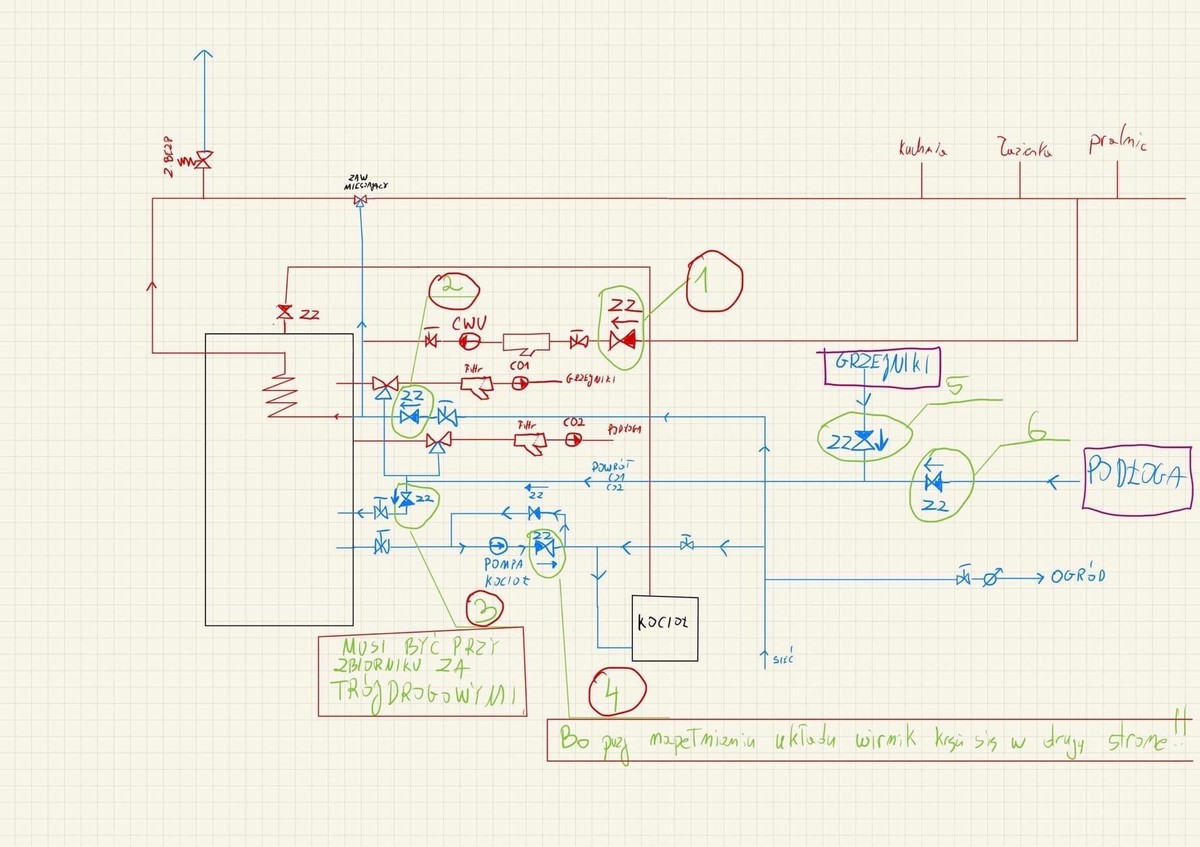 Z.BEZP
ZAW
MIESZAJĄCY
Kuchnia
Łazienka
pralnia
ZZ
2
ZZ
1
CWU
Filtr
CO1
GRZEJNIKI
GRZEJNIKI
5
ZZ
Filtr
CO2
PODŁOGA
ZZ
6
POWRÓT
CO1
CO2
PODŁOGA
ZZ
ZZ
ZZ
ZZ
POMPA
KOCIOŁ
OGRÓD
3
KOCIOŁ
SIEĆ
MUSI BYĆ PRZY
ZBIORNIKU ZA
TRÓJDROGOWYMI
4
Bo przy napełnianiu układu wirnik kręci się w drugą stronę!!